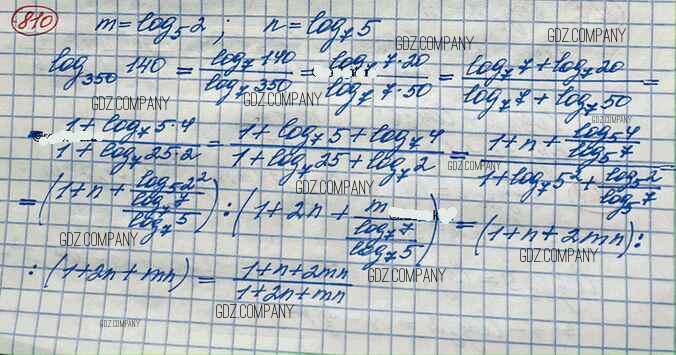 810 m = log₅2 ; n = log₇5
log₃₅₀ 140 = (log₇ 140)/(log₇ 350) = (log₇ 7·20)/(log₇ 7·50) = (log₇ 7 + log₇ 20)/(log₇ 7 + log₇ 50) =
= (1 + log₇ 5·4)/(1 + log₇ 25·2) = (1 + log₇ 5 + log₇ 4)/(1 + log₇ 25 + log₇ 2) = (1 + n + (log₅ 4)/(log₅ 7))/(1 + log₇ 5² + (log₅ 2)/(log₅ 7))
= (1 + n + (log₅ 2²)/((log₇ 7)/(log₇ 5))) : (1 + 2n + m/((log₇ 7)/(log₇ 5))) = (1 + n + 2mn) :
: (1 + 2n + mn) = (1 + n + 2mn)/(1 + 2n + mn)
GDZ.COMPANY
GDZ.COMPANY
GDZ.COMPANY
GDZ.COMPANY
GDZ.COMPANY
GDZ.COMPANY
GDZ.COMPANY
GDZ.COMPANY
GDZ.COMPANY
GDZ.COMPANY
GDZ.COMPANY
GDZ.COMPANY
GDZ.COMPANY